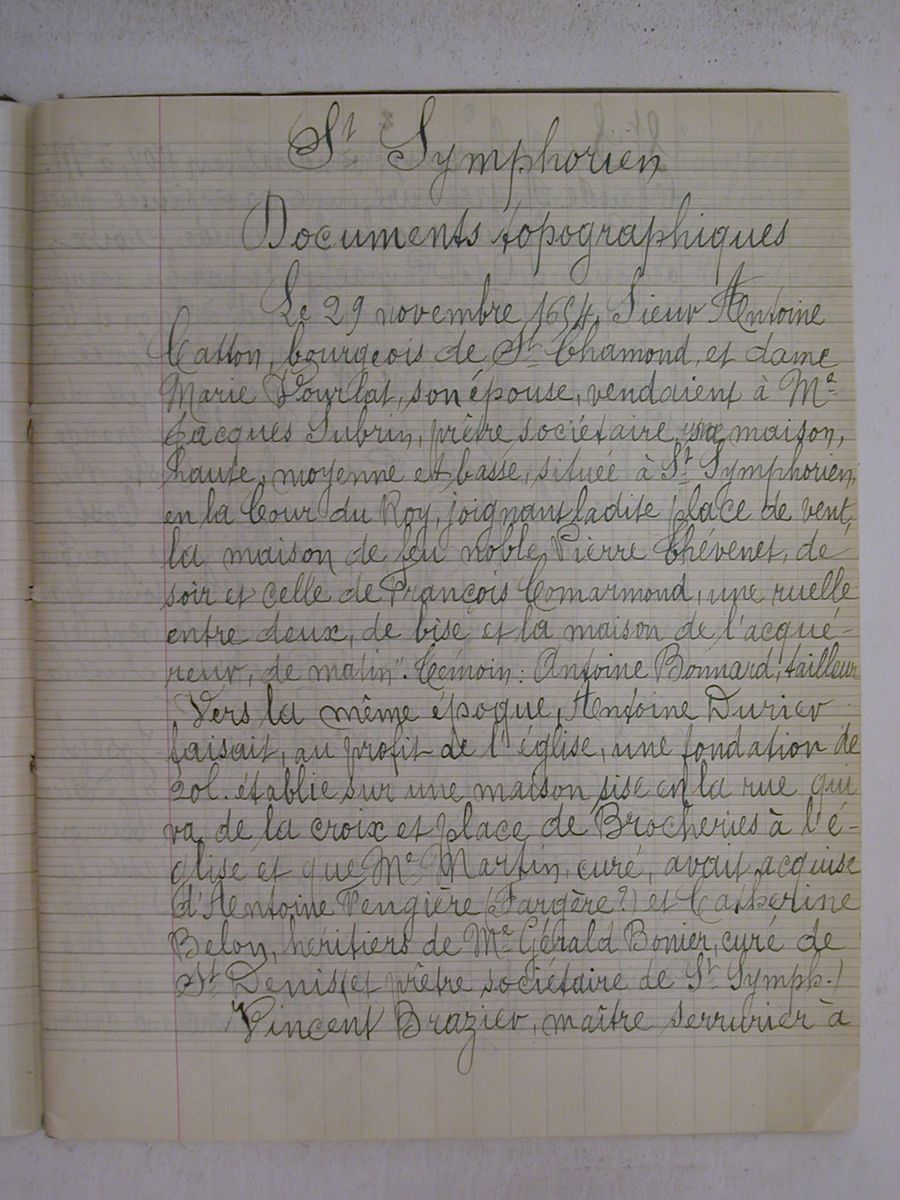 St Symphorien
Documents topographiques
Le 29 novembre 1694, Sieur Antoine
Catton, bourgeois de St Chamond, et dame
Marie Vourlat, son épouse, vendaient à Me
Jacques Subrin, prêtre sociétaire, une maison,
haute, moyenne et basse, située à St Symphorien,
en la Cour du Roy, joignant ladite place de vent,
la maison de feu noble Pierre Thévenet, de
soir et celle de François Comarmond, une ruelle
entre deux, de bise et la maison de l'acqué-
reur, de matin". Témoin : Antoine Bonnard, tailleur
Vers la même époque, Antoine Durieu
faisait, au profit de l'église, une fondation de
20l. établie sur une maison sise en la rue qui
va de la croix et place de Brocheries à l'é-
glise et que Me Martin, curé, avait acquise
d'Antoine Fengière (Fargère?) et Catherine
Belon, héritiers de Me Gérald Bonier, curé de
St Denis (et prêtre sociétaire de St Symph.)
Vincent Brazier, maître serrurier à